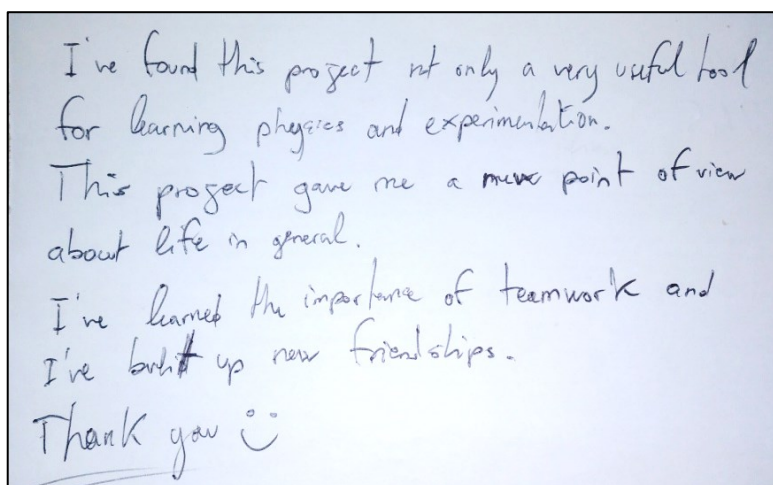 I've found this project not only a very useful tool
for learning physics and experimentation.
This project gave me a point of view
about life in general.
I've learned the importance of teamwork and
I've built up new friendships.
Thank you